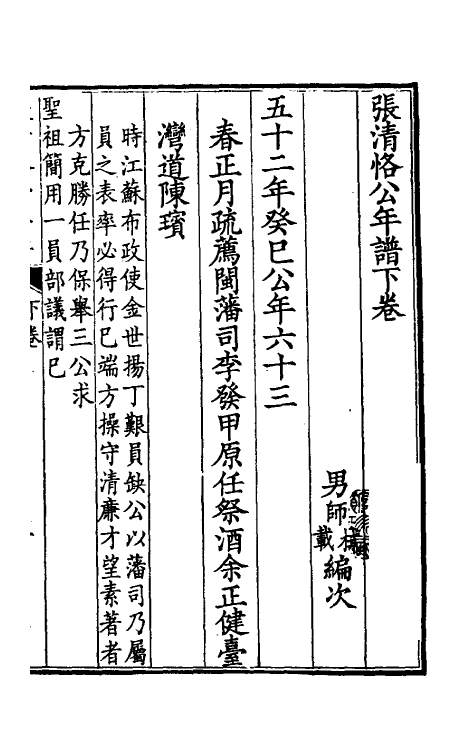 張清恪公年譜下卷
男師栻載編次
五十二年癸巳公年六十三
春正月疏薦閩藩司李發甲原任祭酒余正健臺
灣道陳璸
時江蘇布政使金世揚丁艱員缺公以藩司乃屬
員之表率必得行己端方操守清廉才望素著者
方克勝任乃保舉三公求
聖祖簡用一員部議謂已
下卷